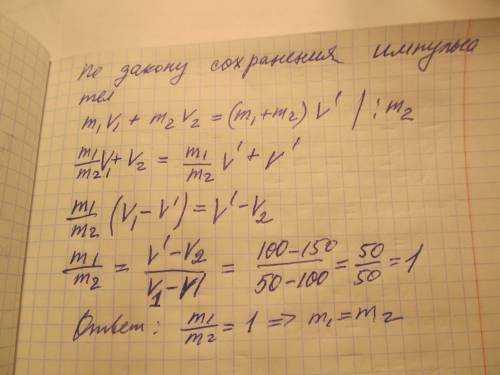 По закону сохранения импульса
тел
m₁V₁ + m₂V₂ = (m₁+m₂) V' / : m₂
m₁/m₂ V₁ + V₂ = m₁/m₂ V' + V'
m₁/m₂ (V₁ - V') = V' - V₂
m₁/m₂ = V' - V₂ / V₁ - V' = 100 - 150 / 50 - 100 = 50/50 = 1
Ответ: m₁/m₂ = 1 => m₁ = m₂